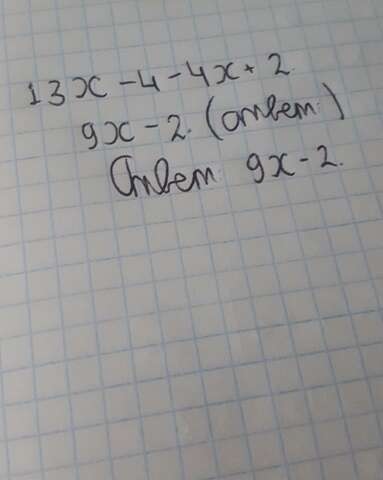 13x - 4 - 4x + 2
9x - 2. (ответ)
Ответ: 9x - 2.